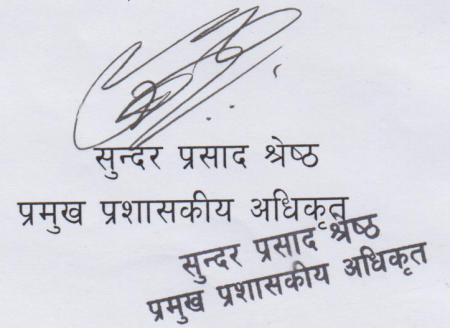 सुन्दर प्रसाद श्रेष्ठ
प्रमुख प्रशासकीय अधिकृत
सुन्दर प्रसाद श्रेष्ठ
प्रमुख प्रशासकीय अधिकृत